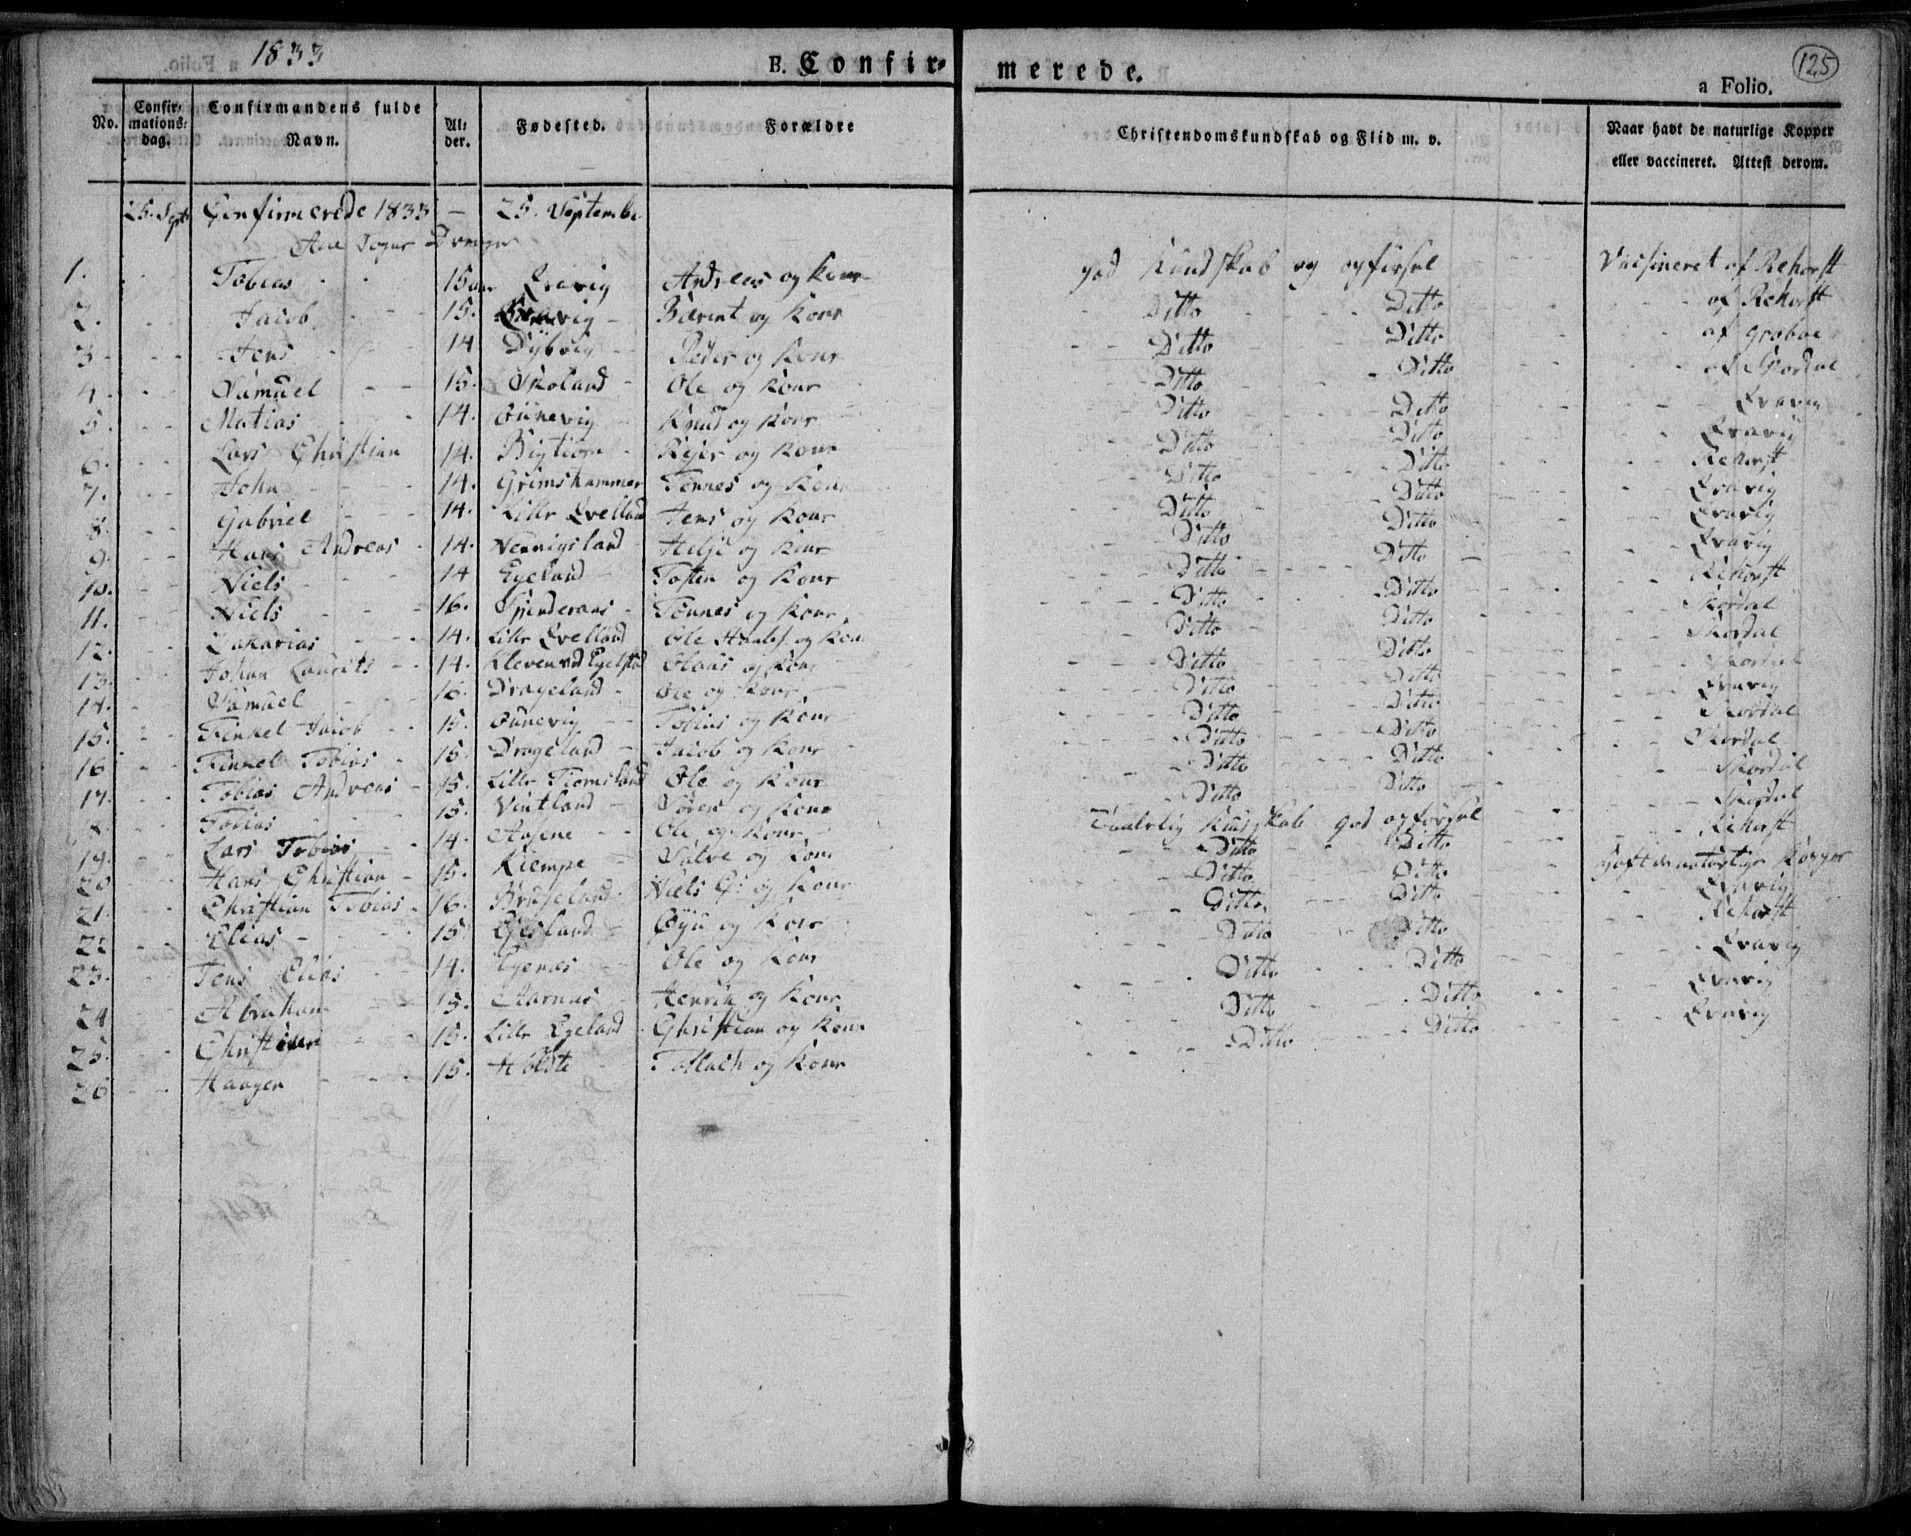 1833
B. Confir-
merede.
125
a Folio.
No.
Confir-
mations-
dag.
Confirmandens fulde
Navn.
Al-
der.
Fødested.
Forældre
Christendomskundskab og Flid m. v.
Naar havt de naturlige Kopper
eller vaccineret. Attest derom.
25. Sept Confirmerede 1833 — 25. Septembr
Drenger
1. Tobias 15 aar Qvavig Andreas og Kone god Kundskab og opførsel Vacsineret af Rehorst
2. Jacob 15. Bærent og Kone Ditto Ditto af Rehorst
3. Jens 14 Dybvig Peder og Kone Ditto Ditto af Groboe
4. Samuel 15. Skoland Ole og Kone Ditto Ditto af Skordal
5. Matias 14. Gunevig Knud og Kone Ditto Ditto Qvavig
6. Lars Christian 14. Rejer og Kone Ditto Ditto Qvavig
7. John 14. Grimshammer Tønnes og Kone Ditto Ditto Rehorst
8. Gabriel 14. Lille Qvelland Jens og Kone Ditto Ditto Qvavig
9. Hans Andreas 14. Helje og Kone Ditto Ditto Qvavig
10. Niels 14 Egeland Tosten og Kone Ditto Ditto Qvavig
11. Niels 16. Tønnes og Kone Ditto Ditto Rehorst
12. Zakarias 14. Lille Qvelland Ole og Kone Ditto Ditto Skordal
13. Johan Laurits 14. Olaus og Kone Ditto Ditto Skordal
14. Samuel 16. Drageland Ole og Kone Ditto Ditto Skordal
15. Tinkel Jacob 15. Gunevig Tobias og Kone Ditto Ditto Qvavig
16 Tinkel Tobias 15. Drageland Jacob og Kone Ditto Ditto Skordal
17. Tobias Andreas 15. Lille Tiomsland Ole og Kone Ditto Ditto Skordal
18. Tobias 15. Søren og Kone Ditto Ditto Skordal
19. Lars Tobias 14. Ole og Kone Taalelig Kundskab god opførsel Skordal
20 Hans Christian 15. Kiempe Salve og Kone Ditto Ditto Rehorst
21. Christian Tobias 16. Brügeland Niels og Kone Ditto Ditto haft de naturlige Kopper
22 Elias 15. og Kone Ditto Ditto Qvavig
23. Jens Elias 14. Egenes Ole og Kone Ditto Ditto Rehorst
24 Abraham 15. Aarnæs Henrik og Kone Ditto Ditto Qvavig
25. Christian 15. Lille Egeland Christian og Kone Ditto Ditto Qvavig
26 Haagen 15. Holdte Tollach og Kone Ditto Ditto Qvavig